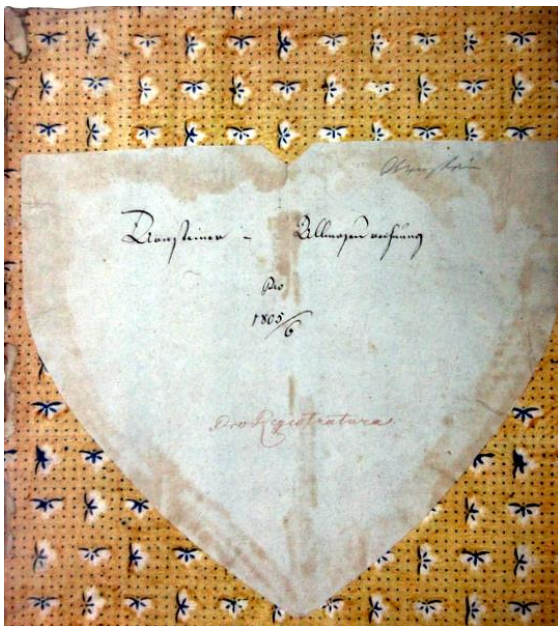 Arnsteiner - Allmosenrechnung
Pro
1805/6
Pro Registratura.